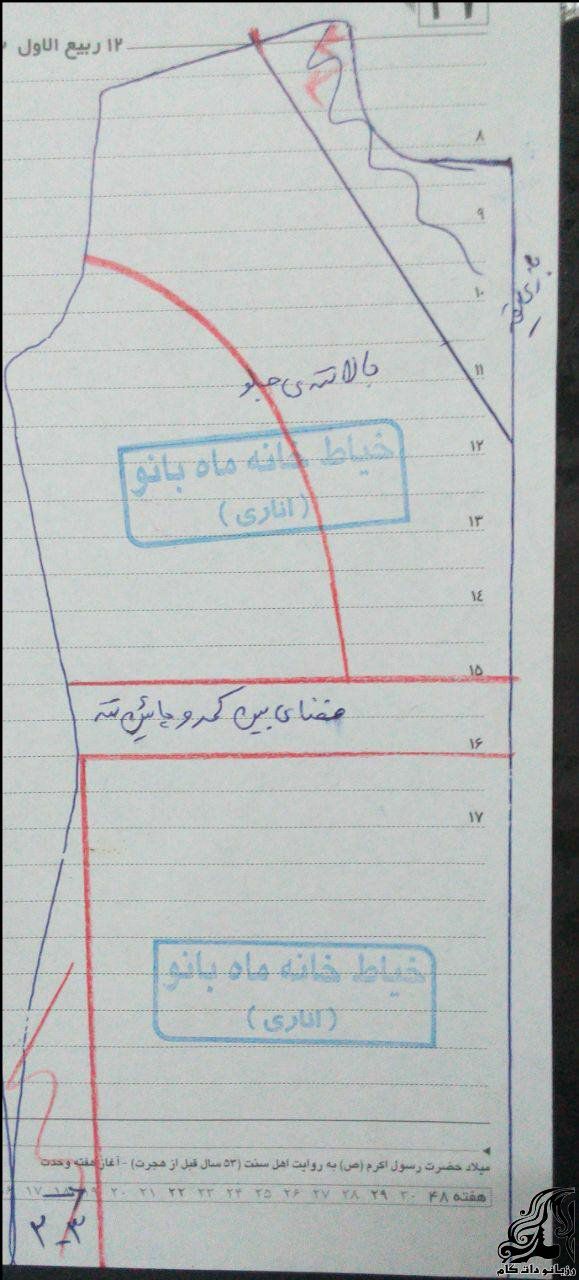 ۱۲ ربیع الاول
۸
۹
۱۰
۱۱
بالاتنه‌ی جلو
خیاط خانه ماه بانو
(اناری)
۱۲
۱۳
۱٤
۱۵
فضای بین کمر و پائین تنه
۱۶
۱۷
خیاط خانه ماه بانو
(اناری)
میلاد حضرت رسول اکرم (ص) به روایت اهل سنت (۵۳ سال قبل از هجرت) - آغاز هفته وحدت
هفته ۴۸ ۳۰ ۲۹ ۲۸ ۲۷ ۲۶ ۲۵ ۲۴ ۲۳ ۲۲ ۲۱ ۲۰ ۱۹ ۱۸ ۱۷
۲-۳
رزبانو دات کام